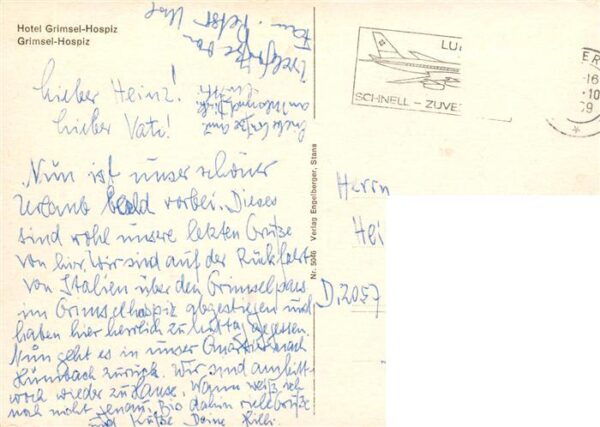 Hotel Grimsel-Hospiz
Grimsel-Hospiz
Lieber Heinz!
Lieber Vati!
Nun ist unser schöner
Urlaub bald vorbei. Dieses
sind wohl unsere letzten Grüße
von hier. Wir sind auf der Rückfahrt
von Italien über den Grimselpass
im Grimselhospiz abgestiegen und
haben hier herrlich zu Mittag gegessen.
Nun geht es in unser Quartier nach
zurück. Wir sind am Mitt-
woch wieder zu Hause. Wann weiß ich
noch nicht genau. Bis dahin viele Grüße
und Küsse Deine
Nr. 5046 Verlag Engelberger, Stans
LU
SCHNELL - ZUVE
ER
-16
.10
9
Herrn
Hei
D. 2057